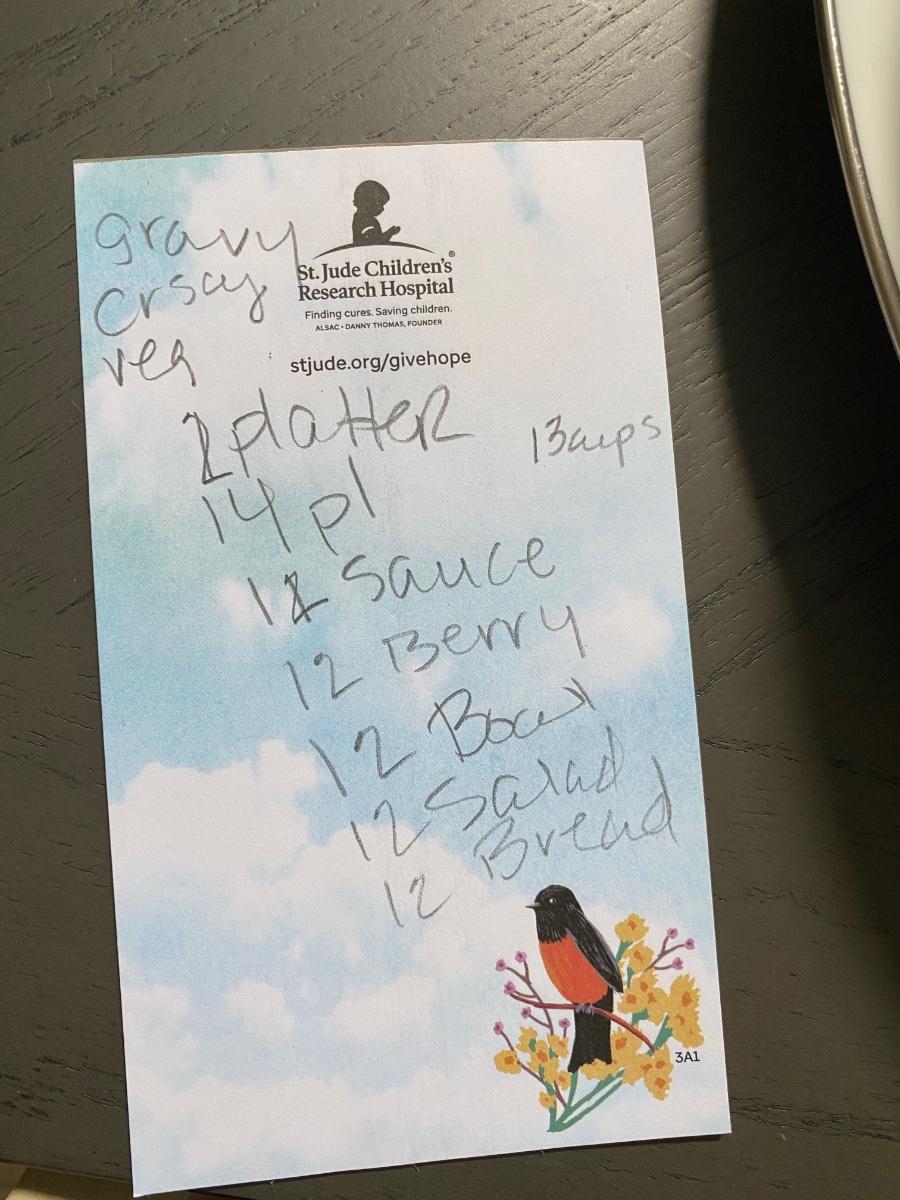 gravy
crscy
veg
St. Jude Children's®
Research Hospital
Finding cures. Saving children.
ALSAC • DANNY THOMAS, FOUNDER
stjude.org/givehope
2 platter
13 cups
14 pl
12 Sauce
12 Berry
12 Bowl
12 Salad
12 Bread
3A1